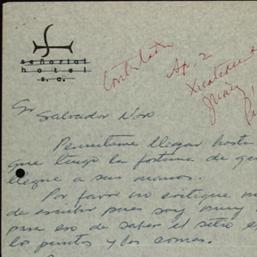 señorial
hotel
s. a.
Contestada
Ap. 2
Sr Salvador Novo
Permitame llegar hasta
que tengo la fortuna de que
llegue a sus manos.
Por favor no critique mi
de escribir pues soy muy
para eso de saber el sitio
los puntos y las comas.